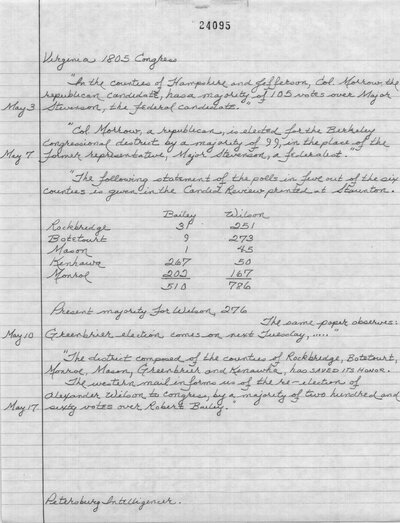 24095
Virginia 1805 Congress
"In the counties of Hampshire and Jefferson, Col. Morrow, the
republican candidate, has a majority of 105 votes over Major
May 3 Stevenson, the federal candidate."
"Col. Morrow, a republican, is elected for the Berkeley
Congressional district by a majority of 99, in the place of the
May 7 former representative, Major Stevenson, a federalist."
"The following statement of the polls in five out of the six
counties is given in the Candid Review printed at Staunton.
Bailey Wilson
Rockbridge 31 251
Botetourt 9 273
Mason 1 45
Kenhawa 267 50
Monroe 202 167
510 786
Present majority For Wilson, 276
The same paper observes:
May 10 Greenbrier election comes on next Tuesday, ....."
"The district composed of the counties of Rockbridge, Botetourt,
Monroe, Mason, Greenbrier and Kenawha, has SAVED ITS HONOR.
The western mail informs us of the re-election of
Alexander Wilson to Congress, by a majority of two hundred and
May 17 sixty votes over Robert Bailey."
Petersburg Intelligencer.